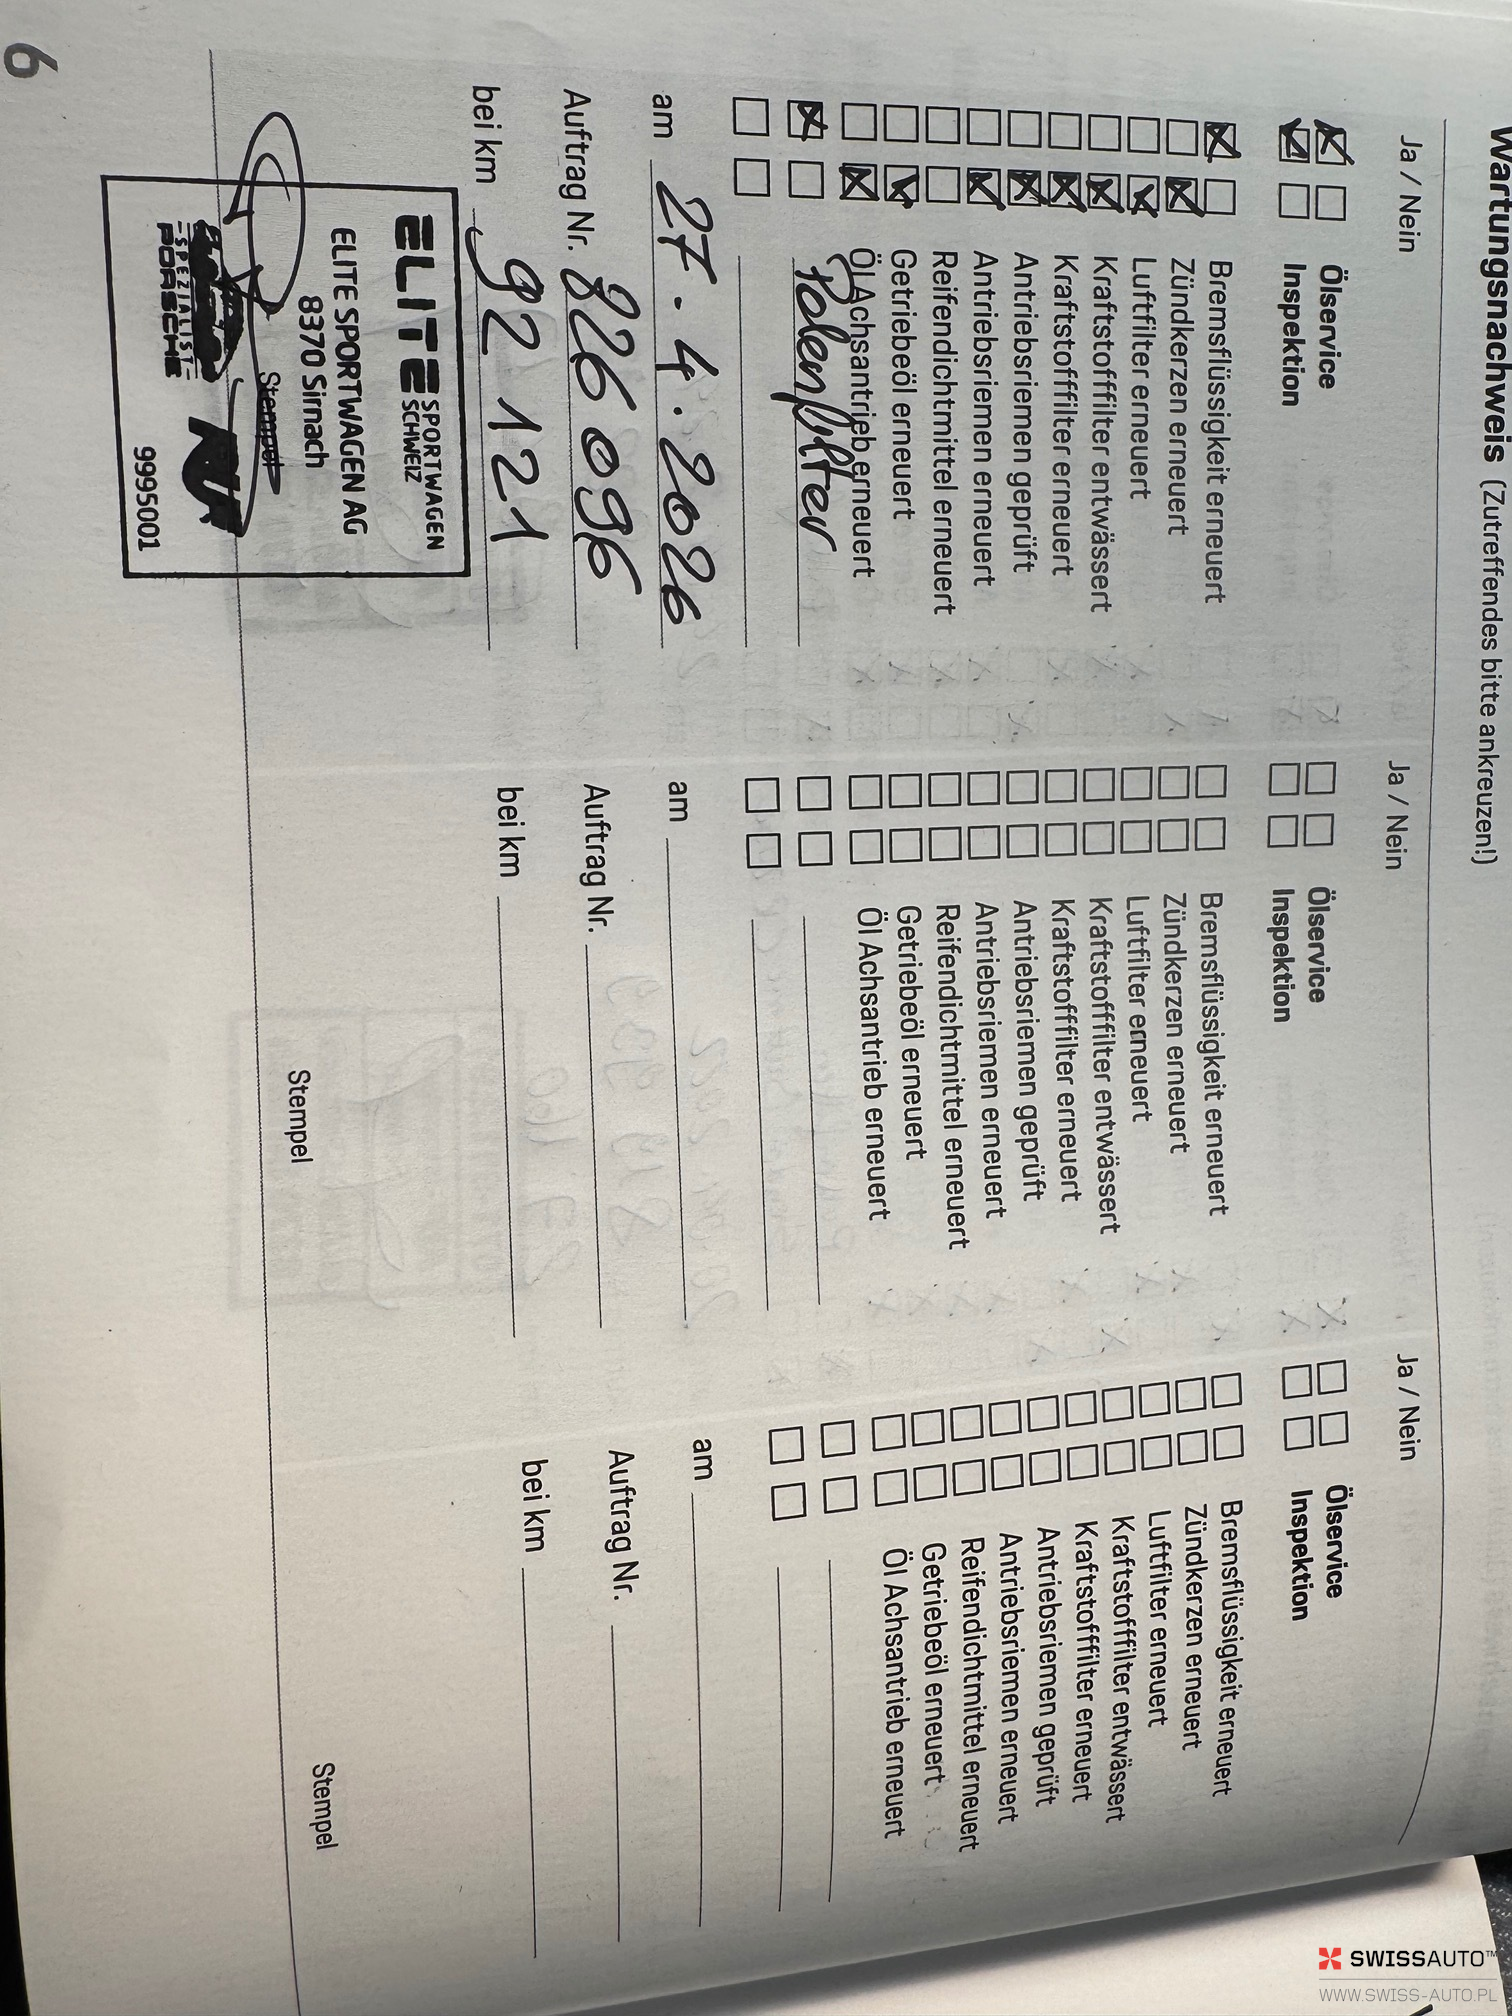 Wartungsnachweis (Zutreffendes bitte ankreuzen!)
Ja / Nein
Ölservice
Inspektion
Bremsflüssigkeit erneuert
Zündkerzen erneuert
Luftfilter erneuert
Kraftstofffilter entwässert
Kraftstofffilter erneuert
Antriebsriemen geprüft
Antriebsriemen erneuert
Reifendichtmittel erneuert
Getriebeöl erneuert
Öl Achsantrieb erneuert
Polenfilter
am 27.4.2026
Auftrag Nr. 826 096
bei km 92 121
ELITE SPORTWAGEN SCHWEIZ
ELITE SPORTWAGEN AG
8370 Sirnach
Stempel
SPEZIALIST
PORSCHE
9995001
Ja / Nein
Ölservice
Inspektion
Bremsflüssigkeit erneuert
Zündkerzen erneuert
Luftfilter erneuert
Kraftstofffilter entwässert
Kraftstofffilter erneuert
Antriebsriemen geprüft
Antriebsriemen erneuert
Reifendichtmittel erneuert
Getriebeöl erneuert
Öl Achsantrieb erneuert
am
Auftrag Nr.
bei km
Stempel
Ja / Nein
Ölservice
Inspektion
Bremsflüssigkeit erneuert
Zündkerzen erneuert
Luftfilter erneuert
Kraftstofffilter entwässert
Kraftstofffilter erneuert
Antriebsriemen geprüft
Antriebsriemen erneuert
Reifendichtmittel erneuert
Getriebeöl erneuert
Öl Achsantrieb erneuert
am
Auftrag Nr.
bei km
Stempel
6
SWISSAUTO™
WWW.SWISS-AUTO.PL